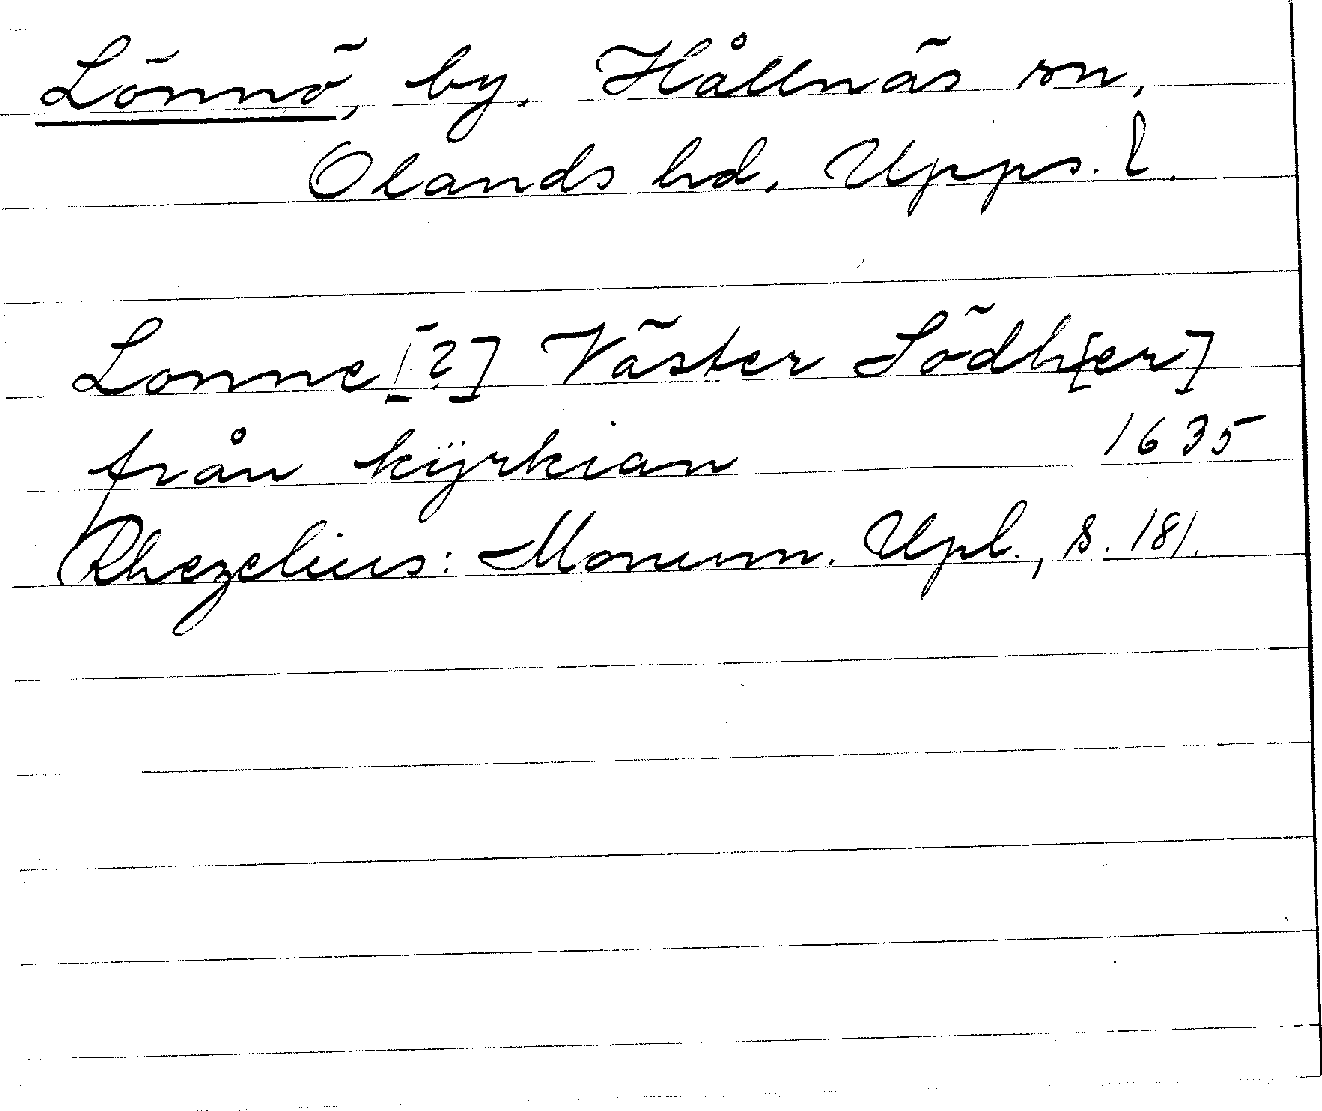 Lönnö, by. Hållnäs sn,
Olands hd, Upps. l.
Lonne[?] Väster Södh[er]
från kÿrkian 1635
Rhezelius: Monum. Upl., s. 181.